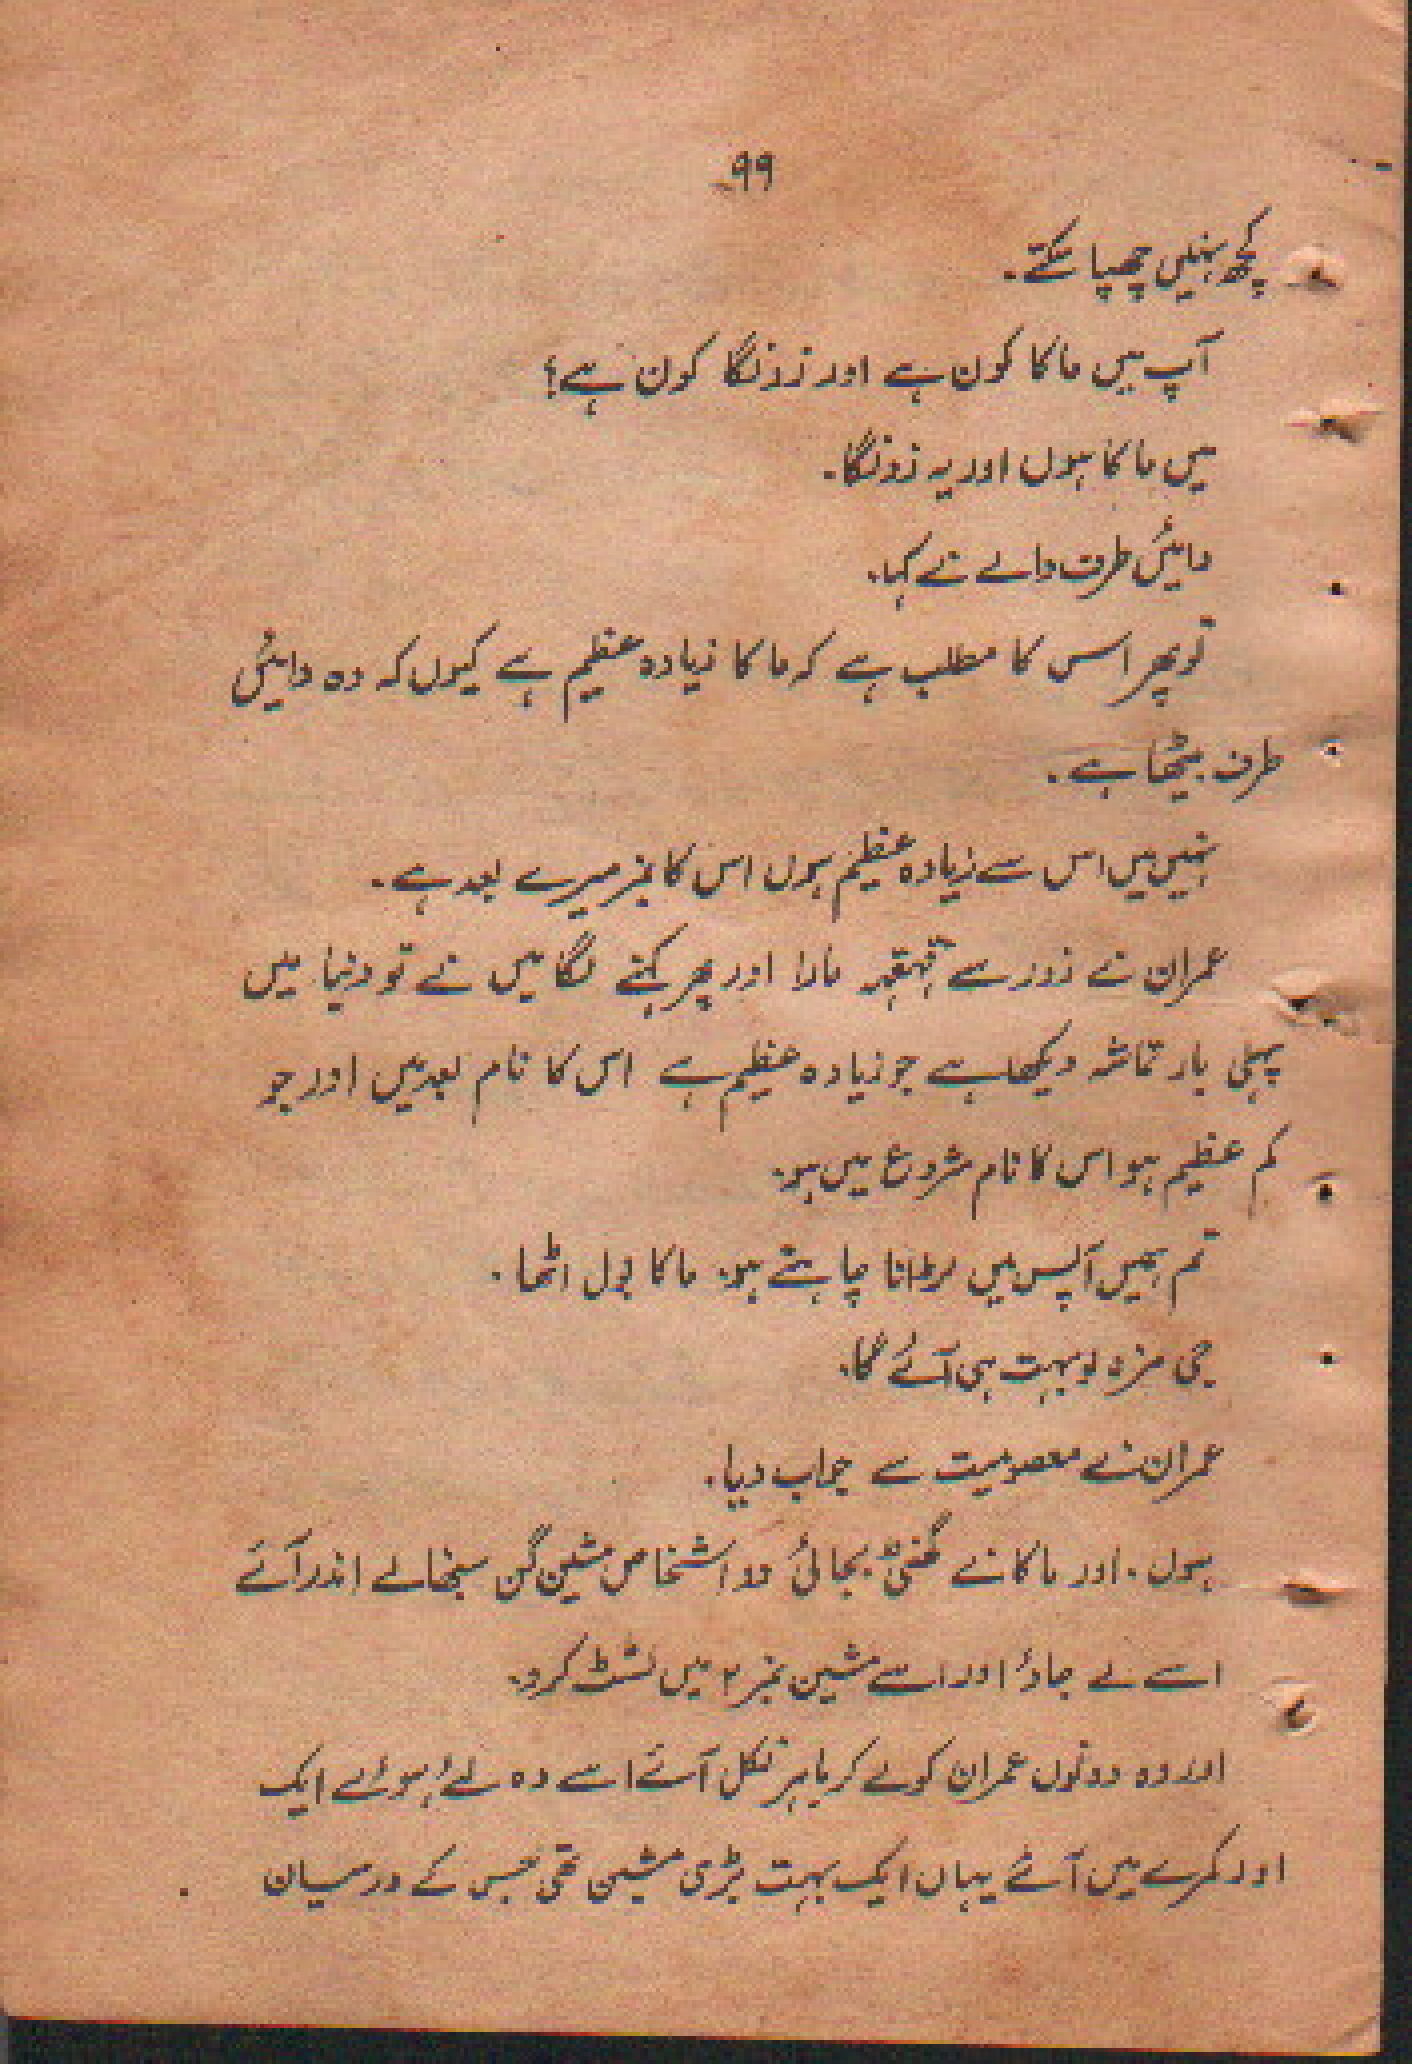 ۹۹
کچھ نہیں چھپا سکتے۔
آپ میں ماکا کون ہے اور زونگا کون ہے؟
میں ماکا ہوں اور یہ زونگا۔
دائیں طرف والے نے کہا۔
تو پھر اس کا مطلب ہے کہ ماکا زیادہ عظیم ہے کیوں کہ وہ دائیں
طرف بیٹھا ہے۔
نہیں میں اس سے زیادہ عظیم ہوں اس کا نمبر میرے بعد ہے۔
عمران نے زور سے قہقہہ مارا اور پھر کہنے لگا میں نے تو دنیا میں
پہلی بار تماشہ دیکھا ہے جو زیادہ عظیم ہے اس کا نام بعد میں اور جو
کم عظیم ہو اس کا نام شروع میں ہو۔
تم ہمیں آپس میں لڑانا چاہتے ہو۔ ماکا بول اٹھا۔
جی مزہ تو بہت ہی آئے گا۔
عمران نے معصومیت سے جواب دیا۔
ہوں۔ اور ماکا نے گھنٹی بجائی دو اشخاص مشین گن سنبھالے اندر آئے
اسے لے جاؤ اور اسے مشین نمبر ۲ میں لسٹ کر دو۔
اور وہ دونوں عمران کو لے کر باہر نکل آئے اسے وہ لئے ہوئے ایک
اور کمرے میں آئے یہاں ایک بہت بڑی مشین تھی جس کے درمیان